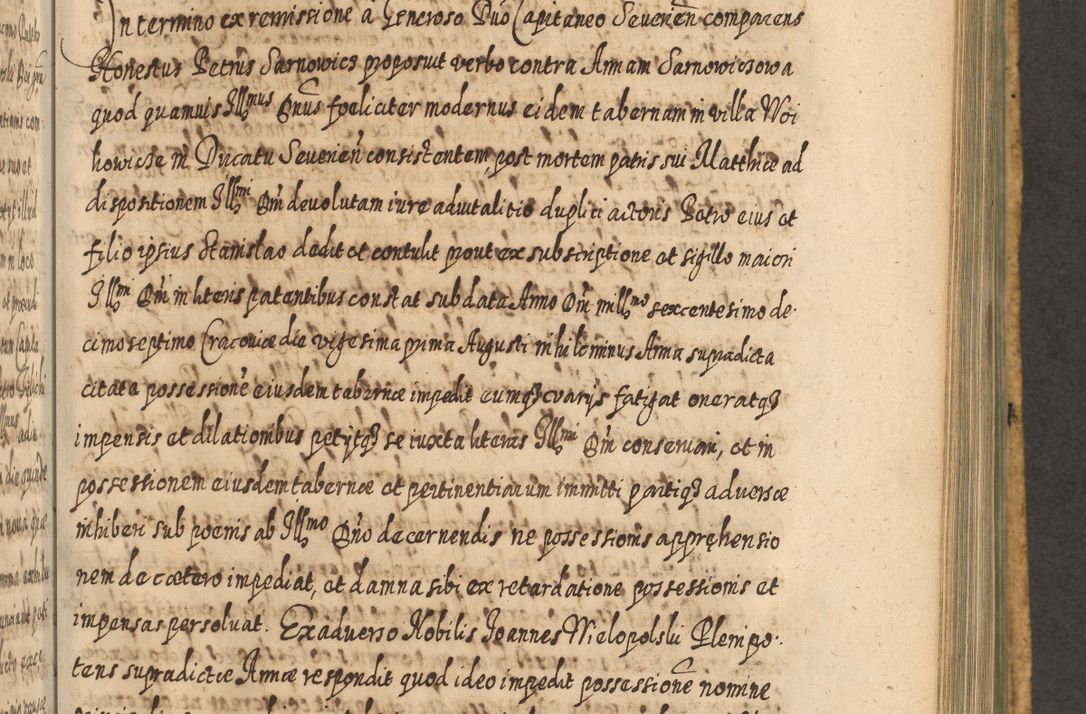 In termino ex remissione a Generoso Dno Capitaneo Severien comparens
Honestus Petrus Sarnowicz proposuit verbo contra Annam Sarnowiczowa
quod quamvis Illmus Dnus foeliciter modernus eidem tabernam in villa Woi
kowicze in Ducatu Severien consistentem, post mortem patris sui Matthiæ ad
dispositionem Illmi Dni devolutam iure advitalitio duplici actoris Petro eius et
filio ipsius Stanislao dedit et contulit prout ex subscriptione et sigillo maiori
Illmi Dni in literis patentibus constat sub data Anno Dni millmo sexcentesimo de
cimo septimo Cracoviæ die vigesima prima Augusti nihilominus Anna supradicta
citata possessione eiusdem tabernæ impedit eumq varijs fatigat oneratq
impensis et dilationibus petijtq se iuxta literas Illmi Dni conservari, et in
possessionem eiusdem tabernæ et pertinentiarum immitti partiq adversæ
inhiberi sub poenis ab Illmo Dno decernendis ne possessionis apprehensio
nem de cætero impediat, et damna sibi ex retardatione possessionis et
impensas persolvat. Ex adverso Nobilis Joannes Wielopolski Plenipo
tens supradictæ Annæ respondit quod ideo impedit possessione nomine